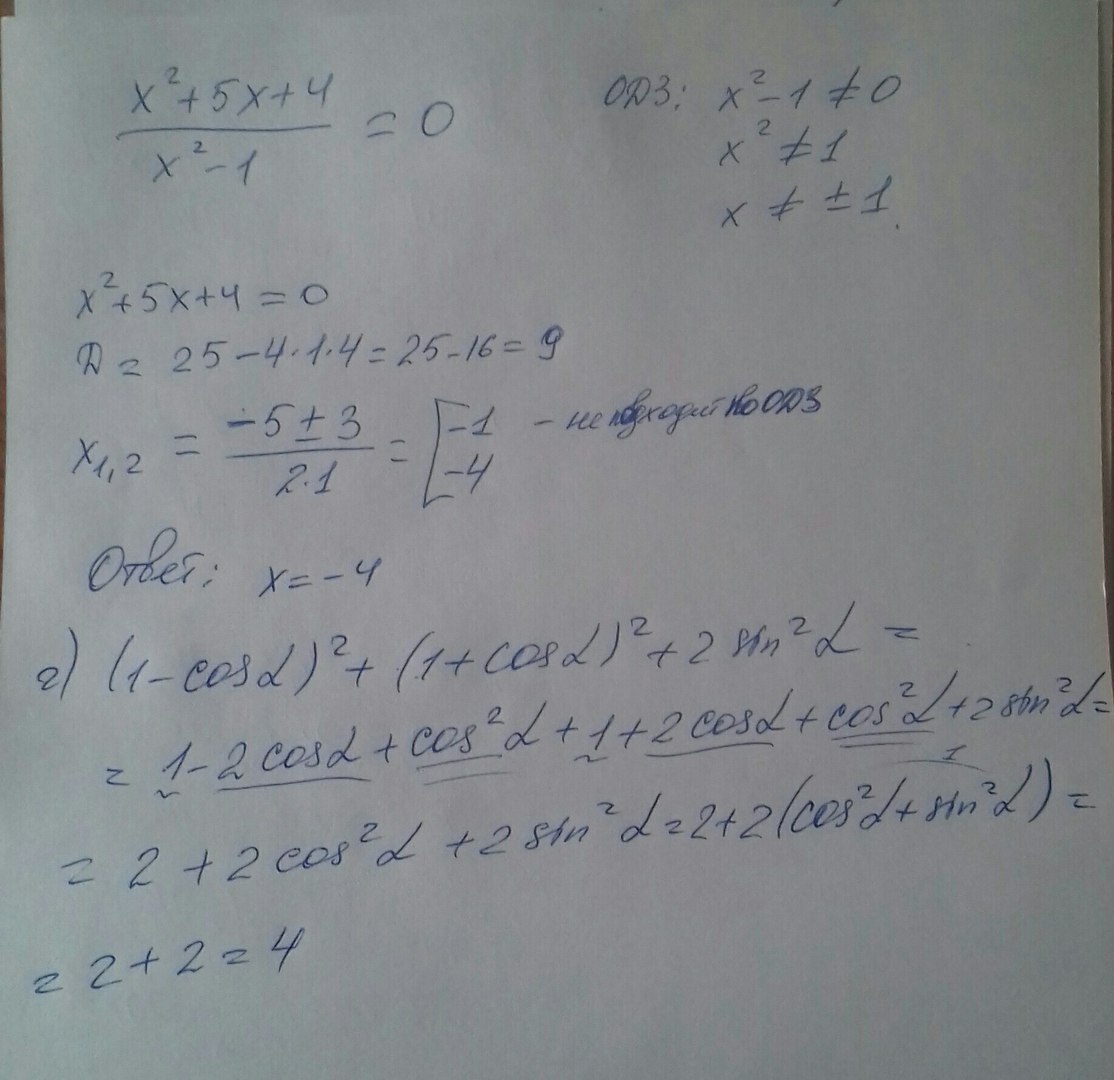 x²+5x+4 / x²-1 = 0
ОДЗ: x²-1 ≠ 0
x² ≠ 1
x ≠ ±1.
x²+5x+4 = 0
D = 25-4·1·4 = 25-16 = 9
x₁,₂ = -5±3 / 2·1 = [-1 - не подходит по ОДЗ
-4
Ответ: x = -4
г) (1-cosα)² + (1+cosα)² + 2 sin²α =
= 1-2cosα + cos²α + 1 + 2cosα + cos²α + 2sin²α =
1
= 2 + 2cos²α + 2sin²α = 2+2(cos²α + sin²α) =
= 2+2 = 4